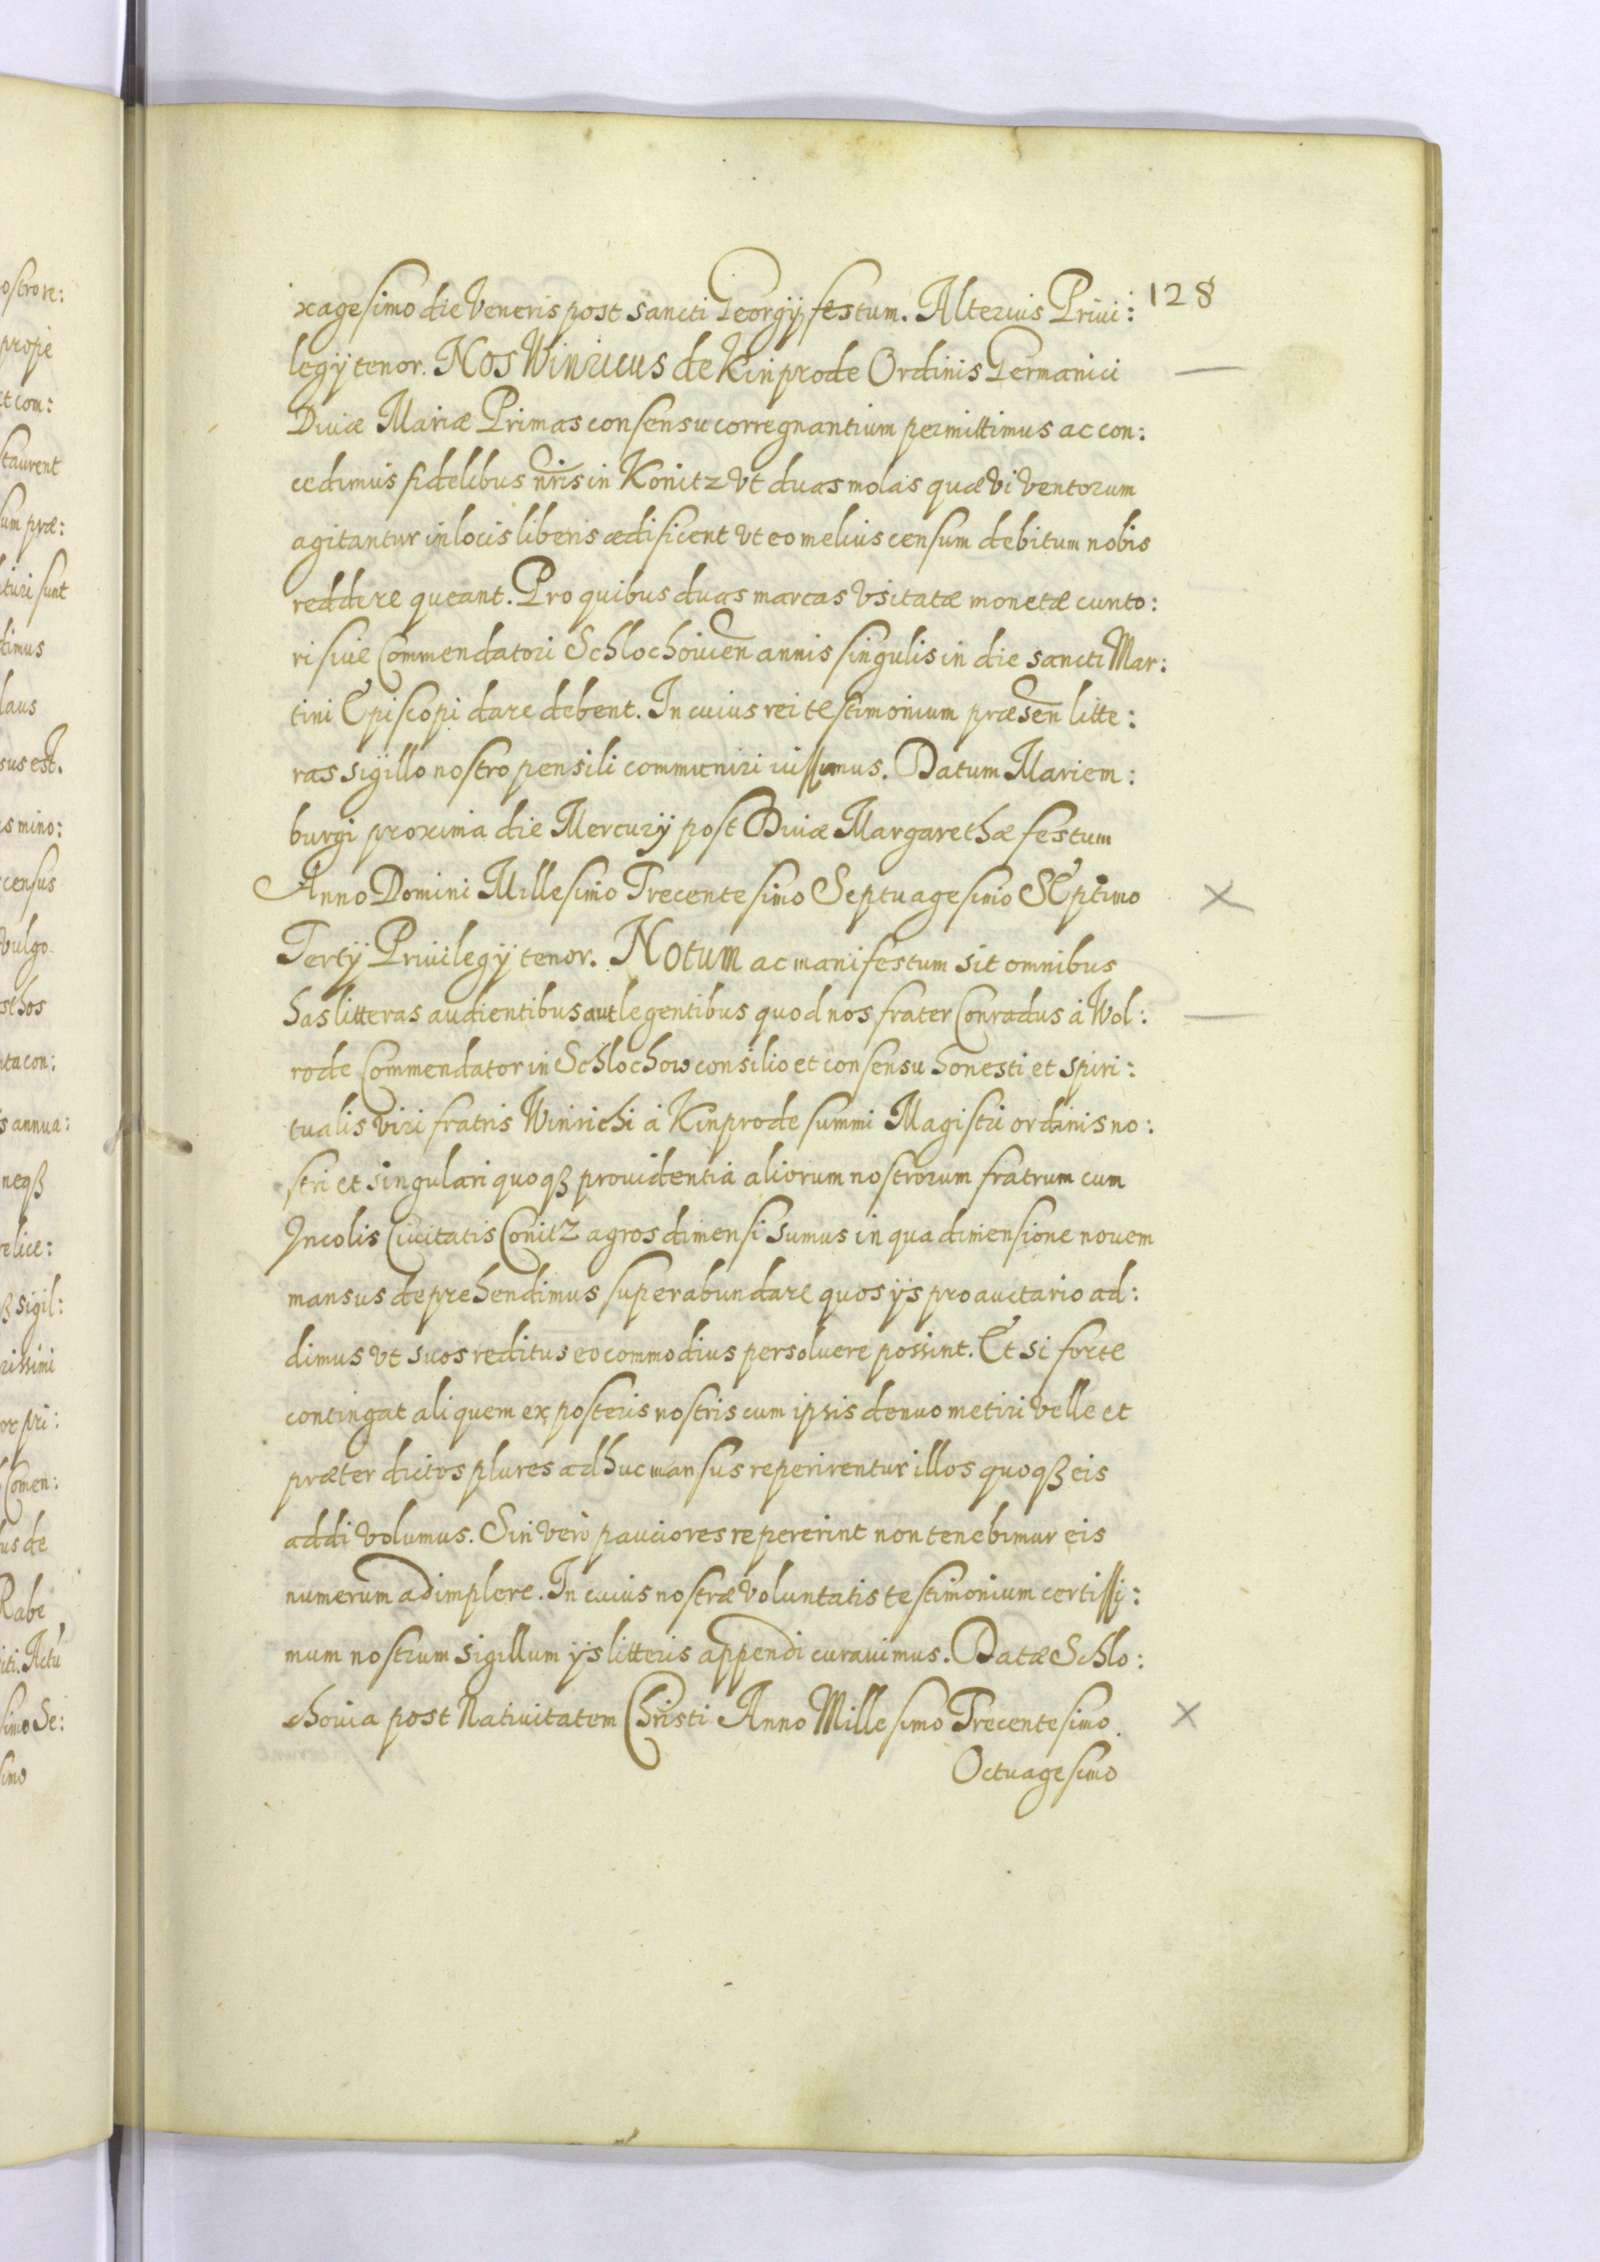 128
xagesimo die Veneris post sancti Georgij festum. Alterius Priui:
legij tenor. Nos Winricus de Kinprode Ordinis Germanici
Diuæ Mariæ Primas consensu corregnantium permittimus ac con:
cedimus fidelibus nris in Konitz vt duas molas quæ vi ventorum
agitantur in locis liberis ædificent vt eo melius censum debitum nobis
reddere queant. Pro quibus duas marcas vsitatæ monetæ cunto:
ri siue Commendatori Schlochouien annis singulis in die sancti Mar:
tini Episcopi dare debent. In cuius rei testimonium præsen litte:
ras sigillo nostro pensili communiri iussimus. Datum Mariem:
burgi proxima die Mercurij post Diuæ Margarethæ festum
Anno Domini Millesimo Trecentesimo Septuagesimo Septimo
Tertij Priuilegij tenor. Notum ac manifestum sit omnibus
has litteras audientibus aut legentibus quod nos frater Conradus à Wol:
rode Commendator in Schlochow consilio et consensu honesti et spiri:
tualis viri fratris Winrichi à Kinprode summi Magistri ordinis no:
stri et singulari quoqȝ prouidentia aliorum nostrorum fratrum cum
Incolis Ciuitatis Conitz agros dimensi sumus in qua dimensione nouem
mansus deprehendimus superabundare quos ijs pro auctario ad:
dimus vt suos reditus eo commodius persoluere possint. Et si forte
contingat aliquem ex posteris nostris cum ipsis denuo metiri velle et
præter dictos plures adhuc mansus reperirentur illos quoqȝ eis
addi volumus. Sin verò pauciores repererint non tenebimur eis
numerum adimplere. In cuius nostræ voluntatis testimonium certissi:
mum nostrum sigillum ijs litteris appendi curauimus. Datæ Schlo:
chouia post Natiuitatem Christi Anno Millesimo Trecentesimo
Octuagesimo